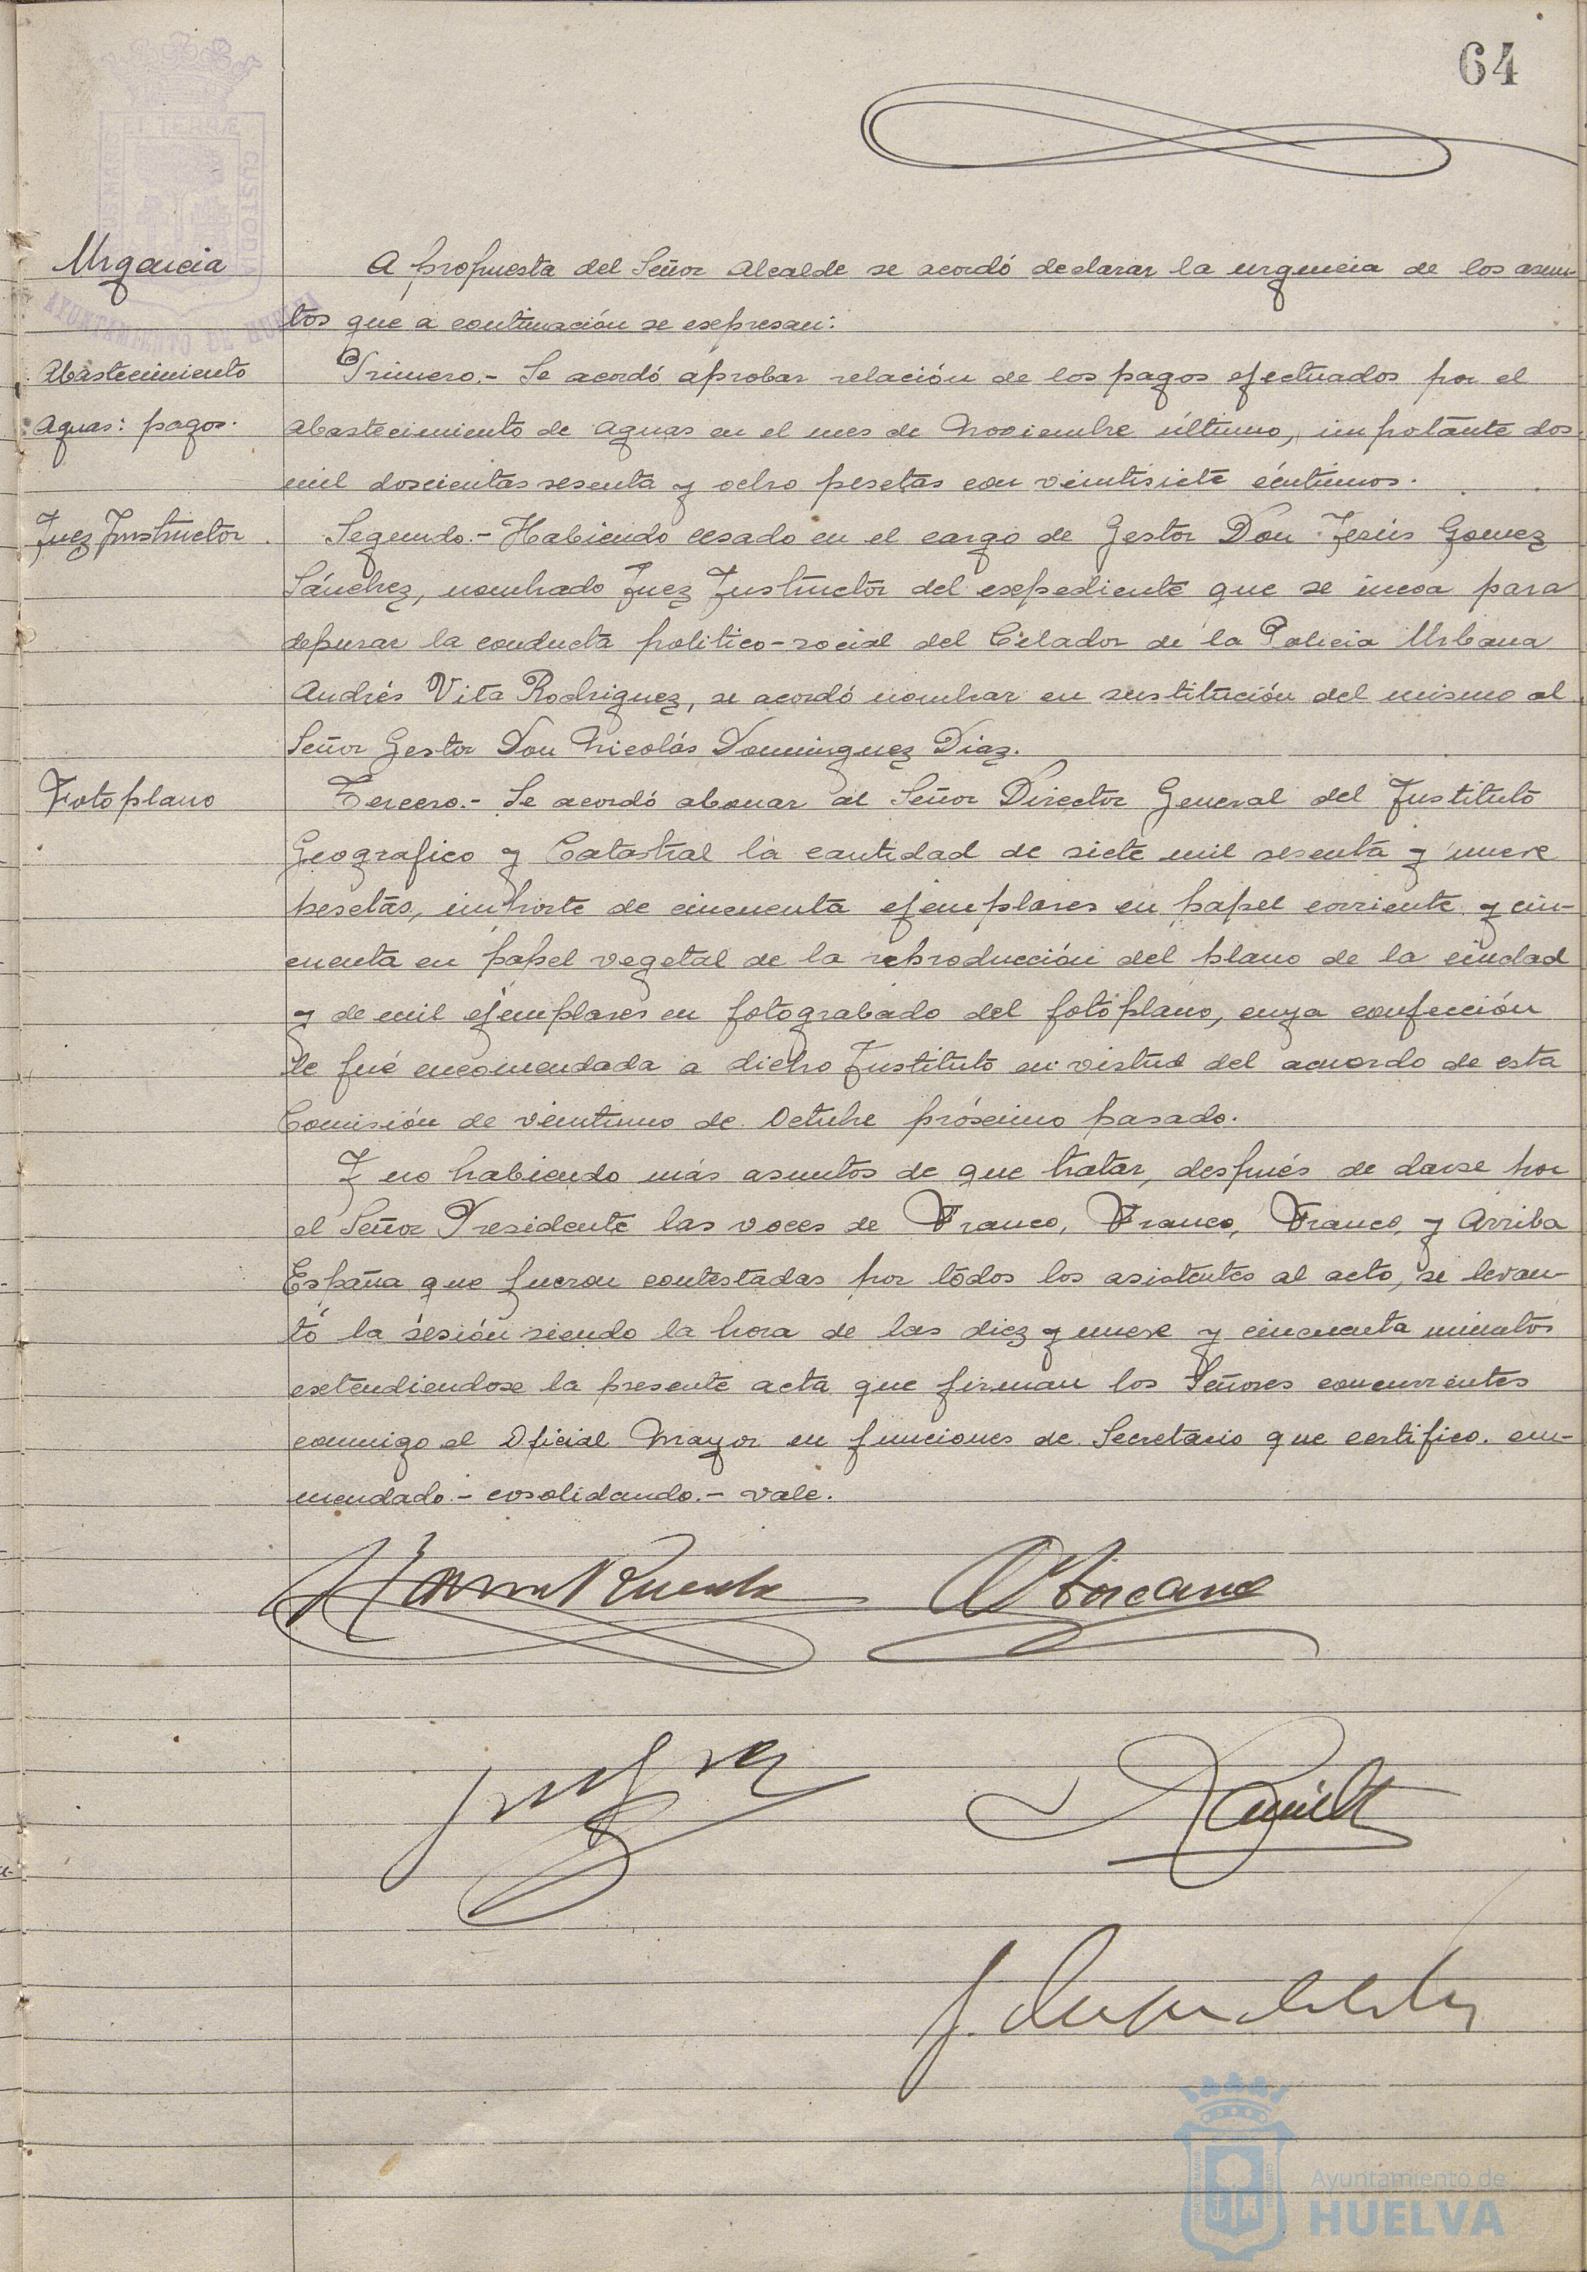 64
Urgencia
A propuesta del Señor Alcalde se acordó declarar la urgencia de los asun-
tos que a continuación se expresan:
Abastecimiento
Aguas: pagos.
Primero.- Se acordó aprobar relación de los pagos efectuados por el
abastecimiento de aguas en el mes de Noviembre último, impotante dos
mil doscientas sesenta y ocho pesetas con veintisiete céntimos.
Juez Instructor
Segundo.- Habiendo cesado en el cargo de Gestor Don Jesús Gomez
Sánchez, nombrado Juez Instructor del expediente que se incoa para
depurar la conducta politico-social del Celador de la Policia Urbana
Andrés Vita Rodriguez, se acordó nombrar en sustitución del mismo al
Señor Gestor Don Nicolás Dominguez Diaz.
Fotoplano
Tercero.- Se acordó abonar al Señor Director General del Instituto
Geografico y Catastral la cantidad de siete mil sesenta y nueve
pesetas, importe de cincuenta ejemplares en papel corriente y cin-
cuenta en papel vegetal de la reproducción del plano de la ciudad
y de mil ejemplares en fotograbado del fotoplano, cuya confección
le fué encomendada a dicho Instituto en virtud del acuerdo de esta
Comisión de veintiuno de Octubre próximo pasado.
Y no habiendo más asuntos de que tratar, después de darse por
el Señor Presidente las voces de Franco, Franco, Franco, y Arriba
España que fueron contestadas por todos los asistentes al acto, se levan-
tó la sesión siendo la hora de las diez y nueve y cincuenta minutos
extendiendose la presente acta que firman los Señores concurrentes
conmigo el Oficial Mayor en funciones de Secretario que certifico. en-
mendado.- cosolidando.- vale.
AYUNTAMIENTO DE HUELVA
CUSTODIA
Ayuntamiento de
HUELVA